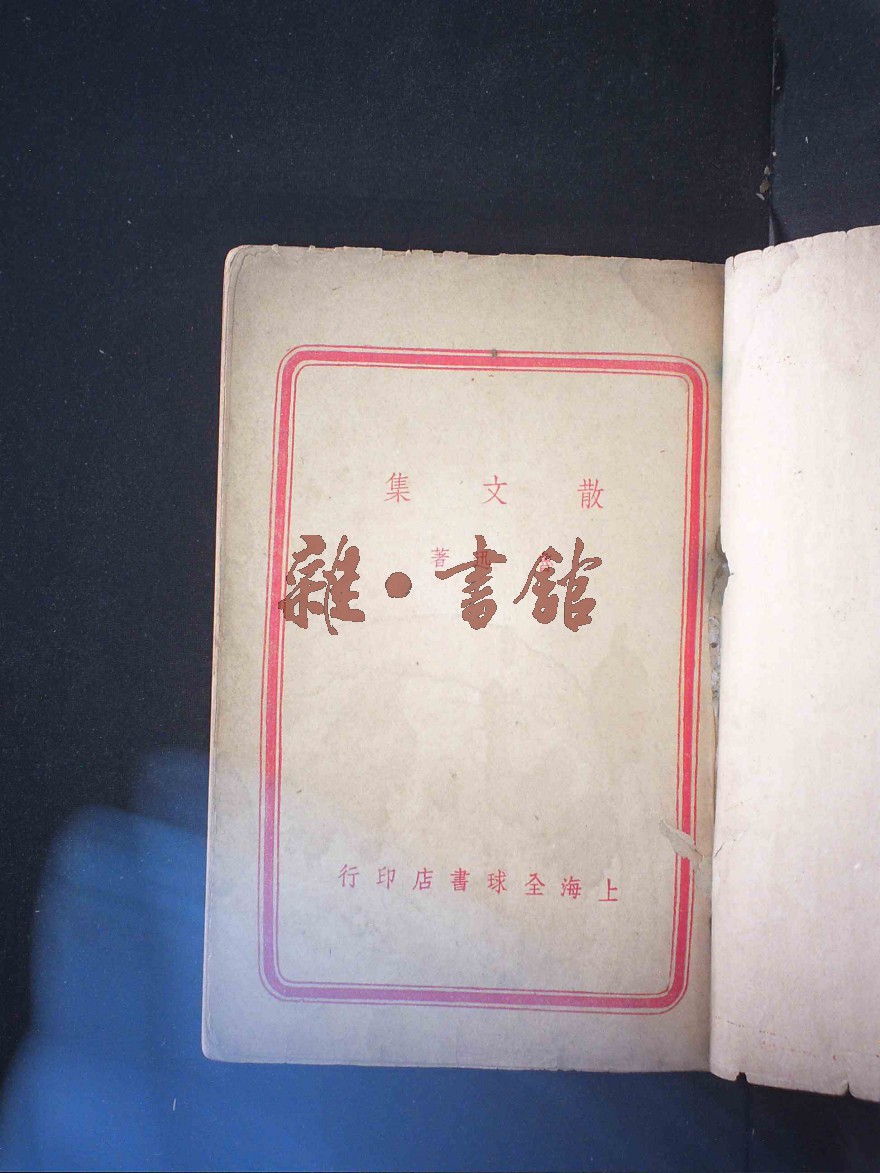 散文集
著
雜·書館
上海全球書店印行